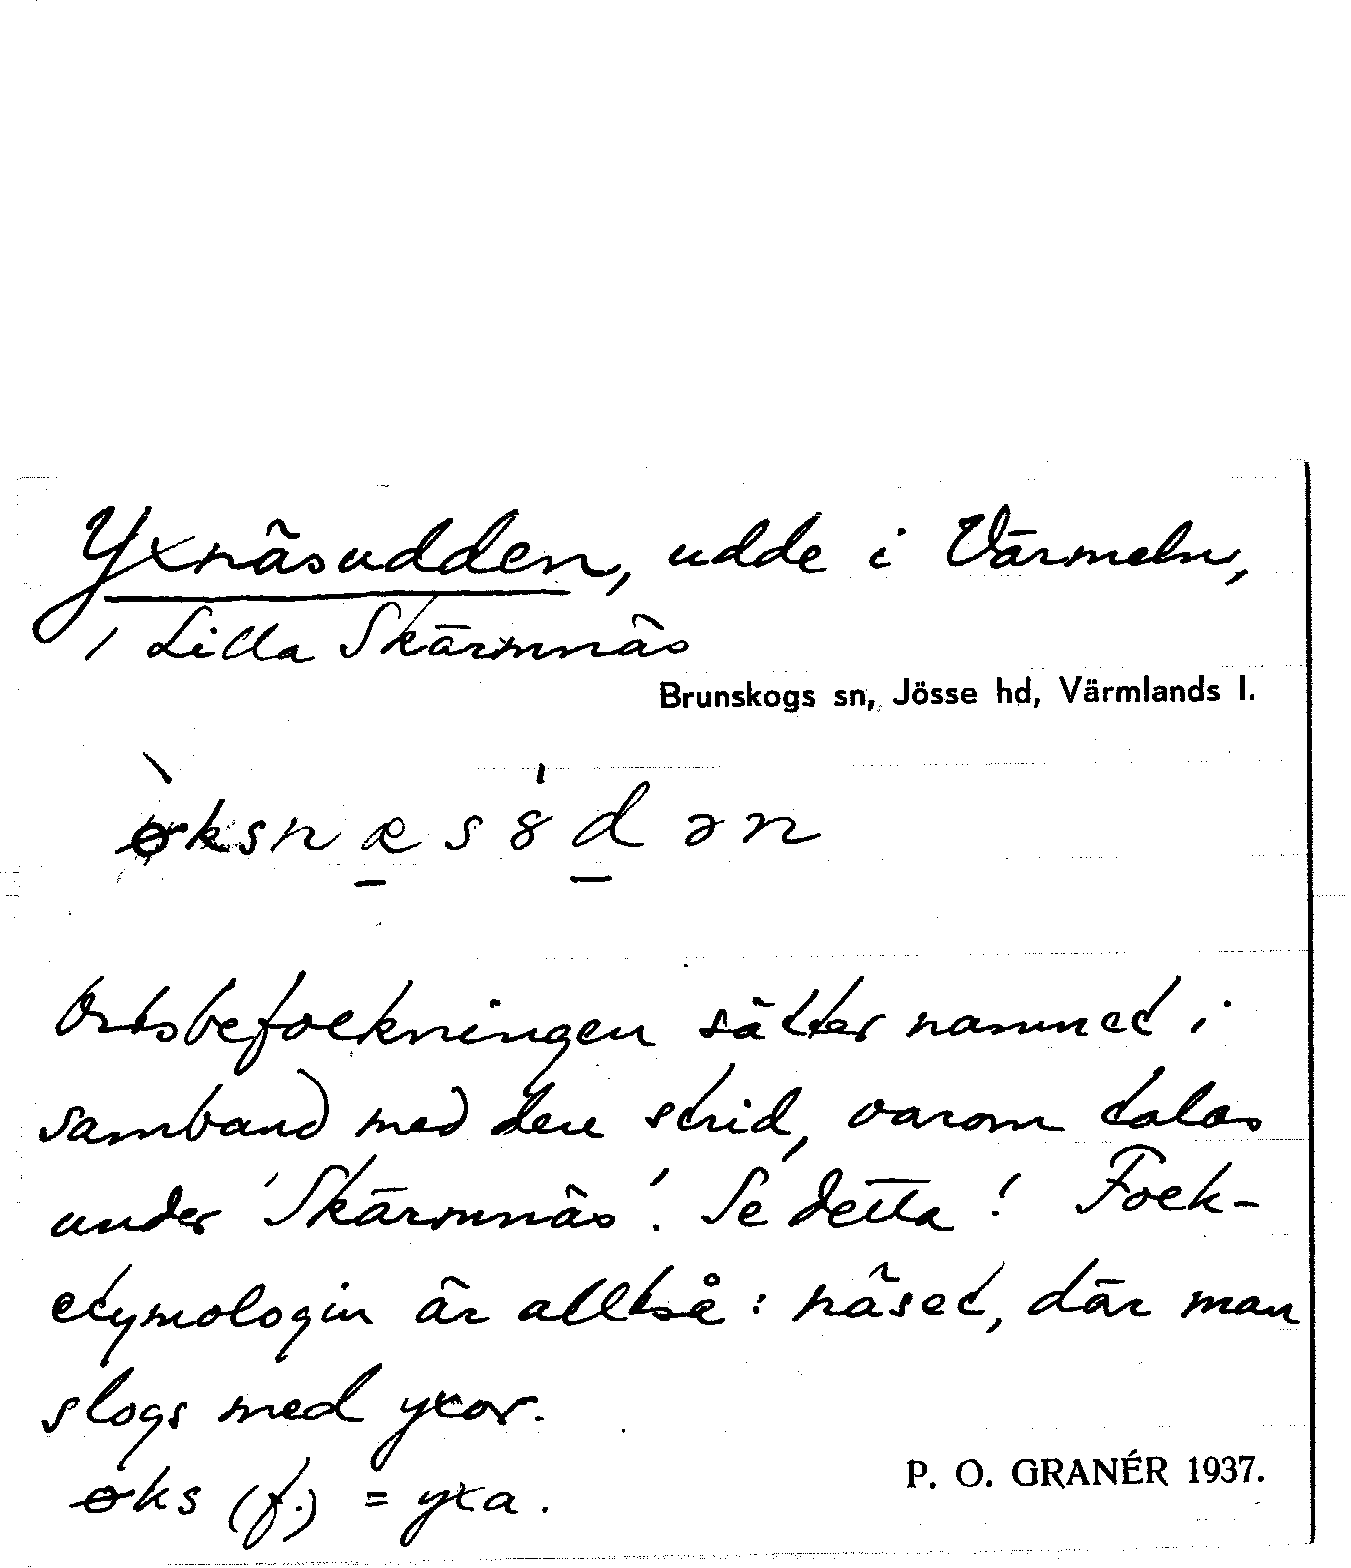 Yxnäsudden, udde i Värmeln,
i Lilla Skärmnäs
Brunskogs sn, Jösse hd, Värmlands l.
ø̀ksnæ̱s8̍ḏən
Ortsbefolkningen sätter namnet i
samband med den strid, varom talas
under 'Skärmnäs'. Se detta! Folk-
etymologin är alltså: näset, där man
slogs med yxor.
øks (f.) = yxa.
P. O. GRANÉR 1937.